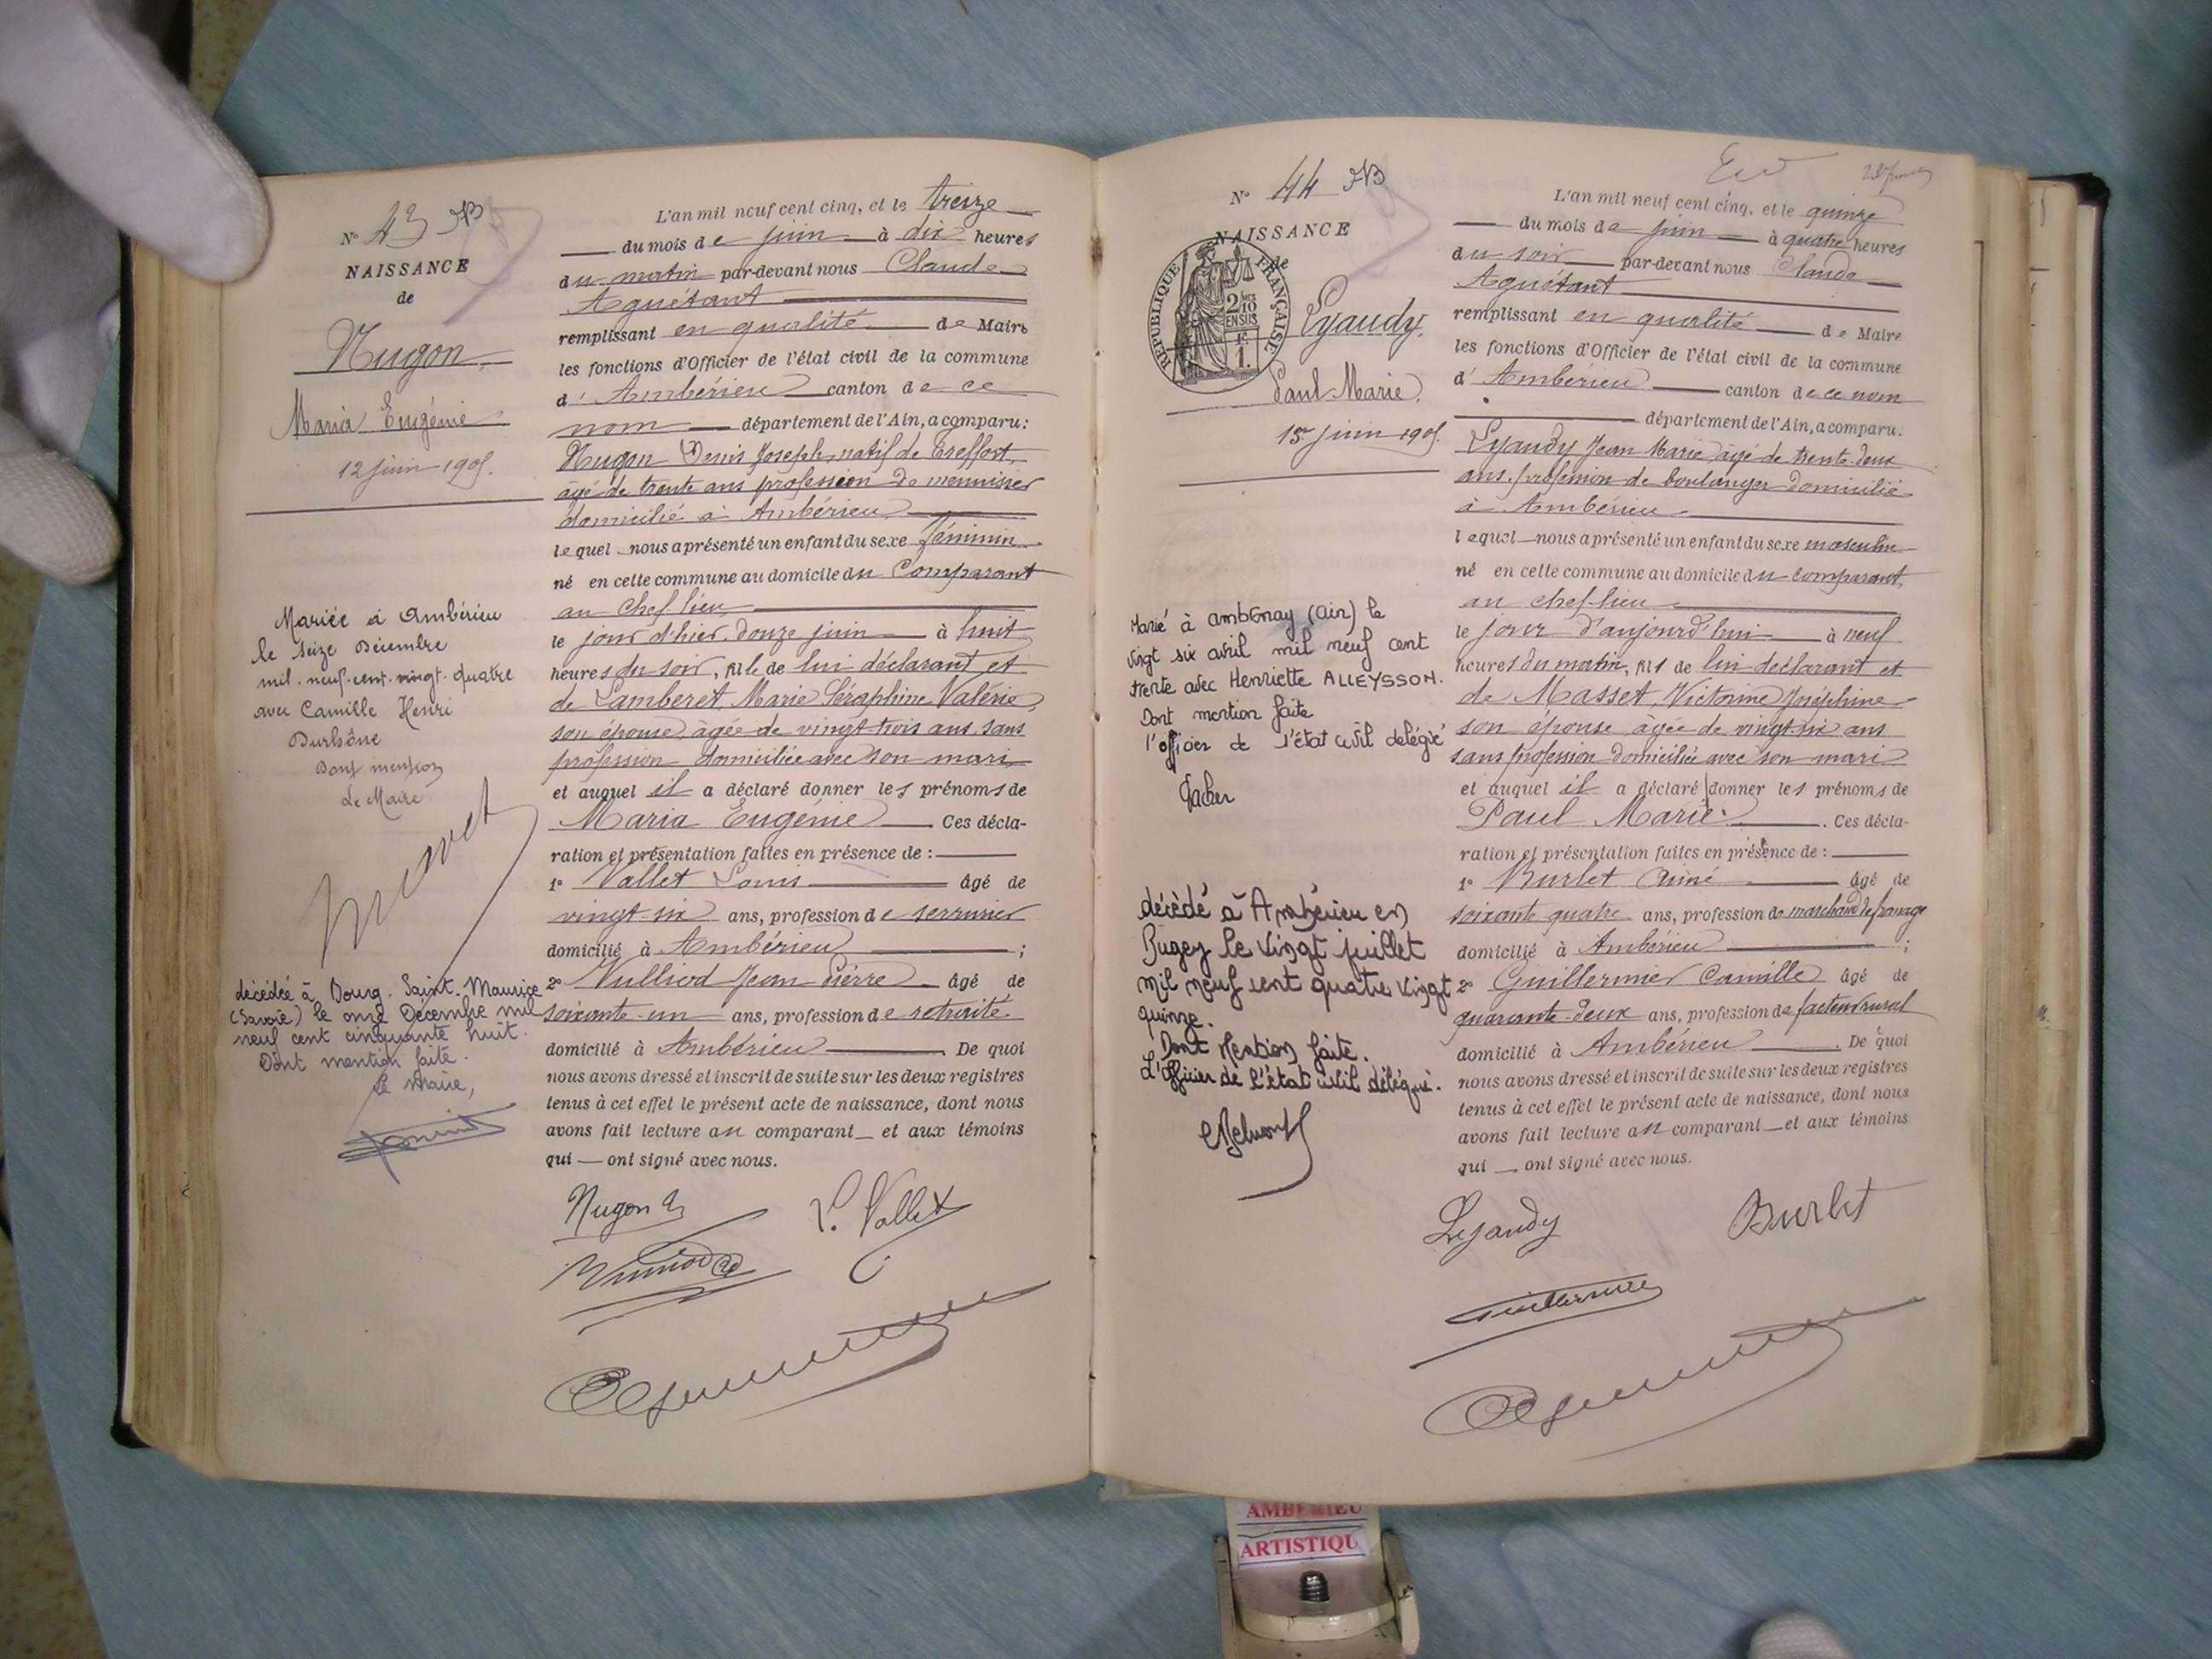 N° 43
NAISSANCE
de
Nugon,
Maria Eugénie
12 juin 1905.
Mariée à Ambérieu
le seize Décembre
mil. neuf. cent. vingt. quatre
avec Camille Henri
Durhône
Dont mention
Le Maire
décédée à Bourg. Saint. Maurice
(Savoie) le onze Décembre mil
neuf cent cinquante huit.
Dont mention faite.
Le Maire,
L'an mil neuf cent cinq, et le treize
du mois de juin à dix heures
du matin par-devant nous Claude
Aguétant
remplissant en qualité de Maire
les fonctions d'Officier de l'état civil de la commune
d'Ambérieu canton de ce
nom département de l'Ain, a comparu:
Nugon Denis Joseph, natif de Treffort,
âgé de trente ans profession de menuisier
domicilié à Ambérieu
lequel nous a présenté un enfant du sexe féminin
né en cette commune au domicile du Comparant
au chef lieu
le jour d'hier, douze juin à huit
heures du soir, fille de lui déclarant et
de Lamberet Marie Séraphine Valérie,
son épouse, âgée de vingt trois ans, sans
profession domiciliée avec son mari,
et auquel il a déclaré donner les prénoms de
Maria Eugénie Ces décla-
ration et présentation faites en présence de :
1° Vallet Louis âgé de
vingt six ans, profession de serrurier
domicilié à Ambérieu ;
2° Vulliod Jean Pierre âgé de
soixante-un ans, profession de retraité.
domicilié à Ambérieu . De quoi
nous avons dressé et inscrit de suite sur les deux registres
tenus à cet effet le présent acte de naissance, dont nous
avons fait lecture au comparant et aux témoins
qui — ont signé avec nous.
Nugon D
L. Vallet
N° 44
NAISSANCE
de
RÉPUBLIQUE FRANÇAISE
2/10 EN SUS
1.
Lyaudy,
Paul Marie.
15 juin 1905.
Marié à Ambronay (Ain) le
vingt six avril mil neuf cent
trente avec Henriette ALLEYSSON.
Dont mention faite
l'officier de l'état civil délégué
décédé à Ambérieu en
Bugey le vingt juillet
mil neuf cent quatre vingt
quinze.
Dont Mention faite.
L'officier de l'état civil délégué.
L'an mil neuf cent cinq, et le quinze
du mois de juin à quatre heures
du soir par-devant nous Claude
Aguétant
remplissant en qualité de Maire
les fonctions d'Officier de l'état civil de la commune
d'Ambérieu canton de ce nom
département de l'Ain, a comparu:
Lyaudy Jean Marie, âgé de trente-deux
ans, profession de boulanger domicilié
à Ambérieu
lequel nous a présenté un enfant du sexe masculin
né en cette commune au domicile du comparant,
au chef-lieu
le jour d'aujourd'hui à neuf
heures du matin, fils de lui déclarant et
de Masset, Victorine Joséphine
son épouse âgée de vingt-six ans
sans profession domiciliée avec son mari
et auquel il a déclaré donner les prénoms de
Paul Marie. . Ces décla-
ration et présentation faites en présence de :
1° Burlet Aimé âgé de
soixante quatre ans, profession de marchand de fromage
domicilié à Ambérieu ;
2° Guillermier Camille âgé de
quarante-deux ans, profession de facteur rural
domicilié à Ambérieu . De quoi
nous avons dressé et inscrit de suite sur les deux registres
tenus à cet effet le présent acte de naissance, dont nous
avons fait lecture au comparant et aux témoins
qui — ont signé avec nous.
Lyaudy
Burlet
Guillermier
AMBERIEU
ARTISTIQU